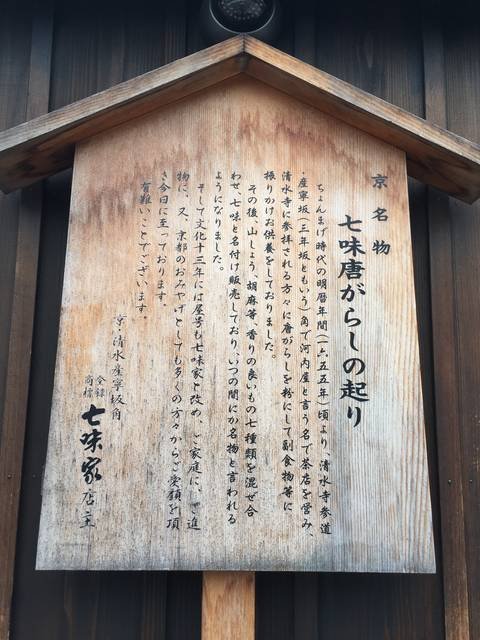 京名物
七味唐がらしの起り
ちょんまげ時代の明暦年間(一六五五年)頃より、清水寺参道
・産寧坂(三年坂ともいう)角で河内屋と言う名で茶店を営み、
清水寺に参拝される方々に唐がらしを粉にして副食物等に
振りかけお供養をしておりました。
その後、山しょう、胡麻等、香りの良いもの七種類を混ぜ合
わせ、七味と名付け販売しており、いつの間にか名物と言われる
ようになりました。
そして文化十三年には屋号も七味家と改め、ご家庭に、ご進
物に、又、京都のおみやげとしても多くの方々からご愛顧を頂
き今日に至っております。
有難いことでございます。
京・清水産寧坂角
登録商標 七味家 店主